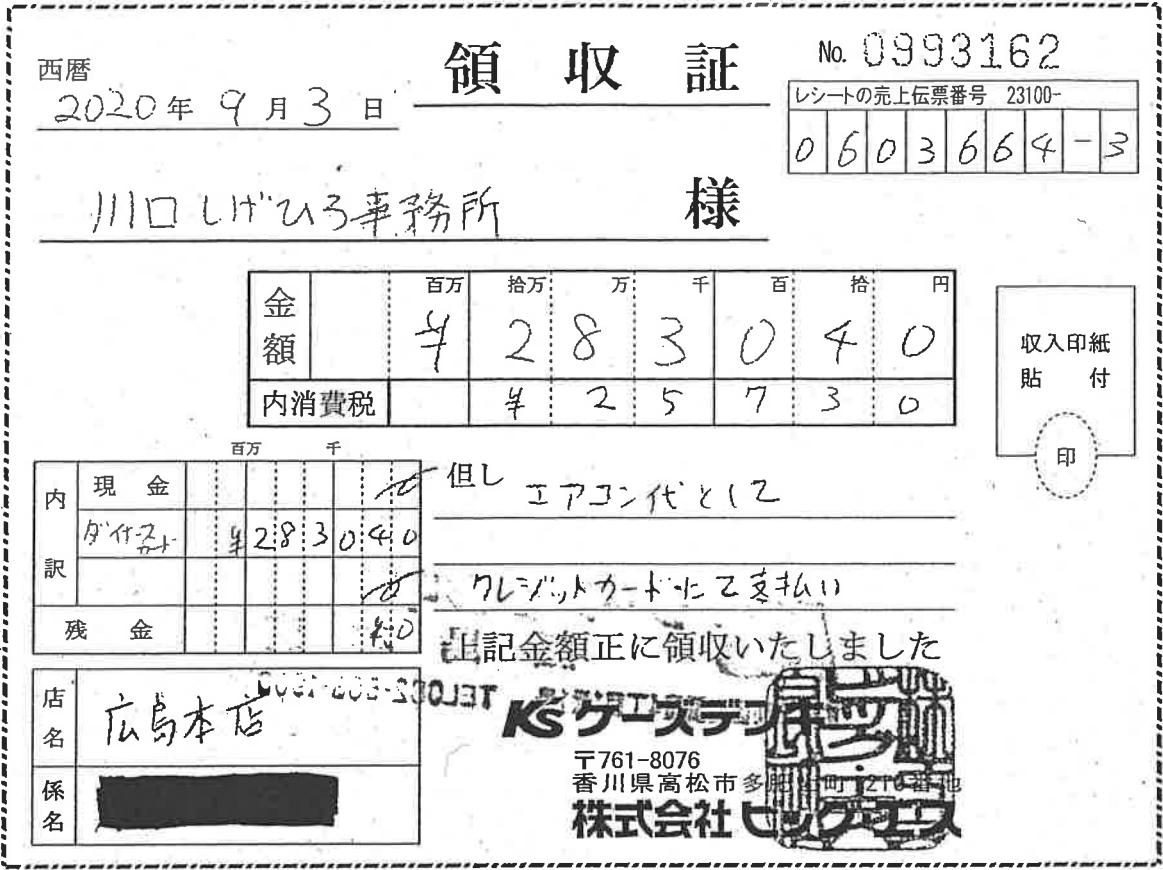 西暦
2020年 9月 3日
領収証
No. 0993162
レシートの売上伝票番号 23100-
0603664-3
川口しげひろ事務所 様
百万 拾万 万 千 百 拾 円
金額 ¥283040
内消費税 ¥25730
収入印紙
貼付
印
百万 千
内訳
現金 0
ダイナースカード ¥283040
0
残金 ¥0
但し エアコン代として
クレジットカードにて支払い
上記金額正に領収いたしました
店名 広島本店
係名
KSケーズデンキ
〒761-8076
香川県高松市多肥上町1210番地
株式会社ビッグ・エス